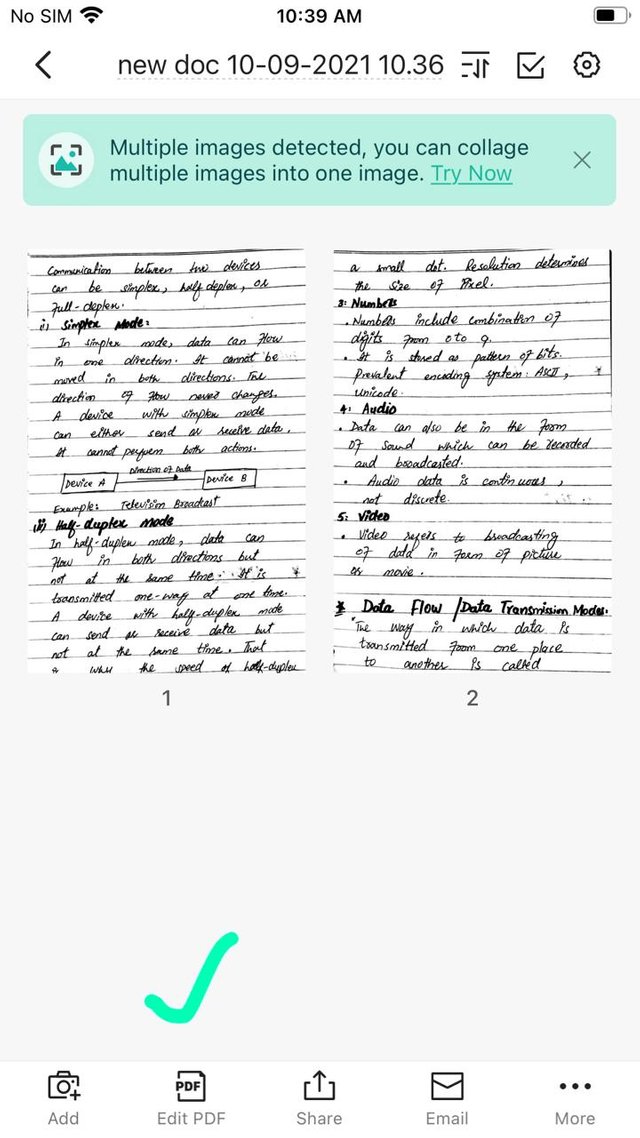 No SIM
10:39 AM
new doc 10-09-2021 10.36
Multiple images detected, you can collage
multiple images into one image. Try Now
Communication between two devices
can be simplex, half deplex, or
Full-deplex.
(i) Simplex Mode:
In simplex mode, data can flow
in one direction. It cannot be
moved in both directions. The
direction of flow never changes.
A device with simplex mode
can either send or receive data.
It cannot perform both actions.
Direction of Data
Device A
Device B
Example: Television Broadcast
(ii) Half-duplex mode
In half-duplex mode, data can
flow in both directions but
not at the same time. It is
transmitted one-way at one time.
A device with half-duplex mode
can send or receive data but
not at the same time. That
is why the speed of half-duplex
1
a small dot. Resolution determines
the size of Pixel.
3: Numbers
. Numbers include combination of
digits from 0 to 9.
. It is stored as pattern of bits.
Prevalent encoding system: ASCII,
unicode.
4: Audio
. Data can also be in the form
of sound which can be recorded
and broadcasted.
. Audio data is continuous,
not discrete.
5: Video
. Video refers to broadcasting
of data in form of picture
or movie.
* Data Flow /Data Transmission Modes.
The way in which data is
transmitted from one place
to another is called
2
Add
PDF
Edit PDF
Share
Email
More